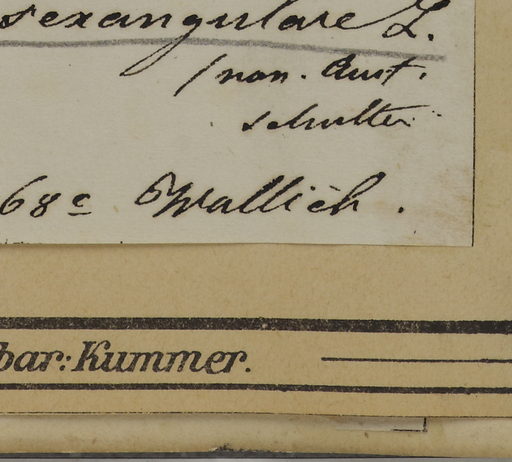 sexangulare L.
(non. Aust.
schulter
68c Wallich.
bar: Kummer.